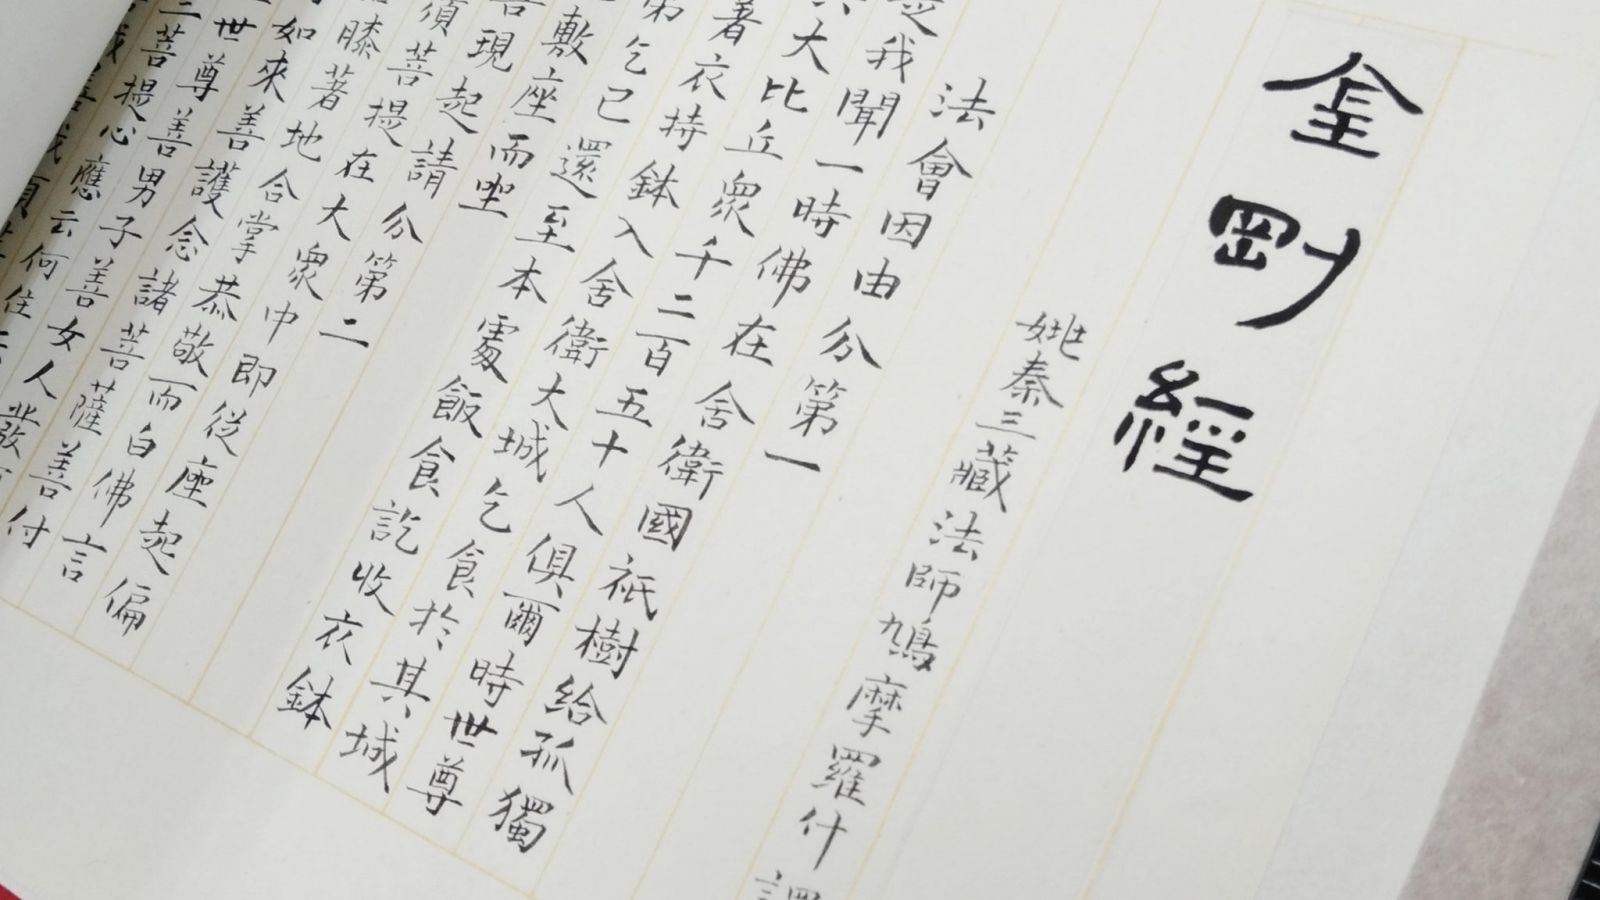 金剛經
姚秦三藏法師鳩摩羅什譯
法會因由分第一
是我聞一時佛在舍衛國祇樹給孤獨
與大比丘眾千二百五十人俱爾時世尊
著衣持鉢入舍衛大城乞食於其城
第乞已還至本處飯食訖收衣鉢
敷座而坐
善現起請分第二
須菩提在大眾中即從座起偏
膝著地合掌恭敬而白佛言
如來善護念諸菩薩善付
世尊善男子善女人發
三菩提心應云何住
哉善哉須菩